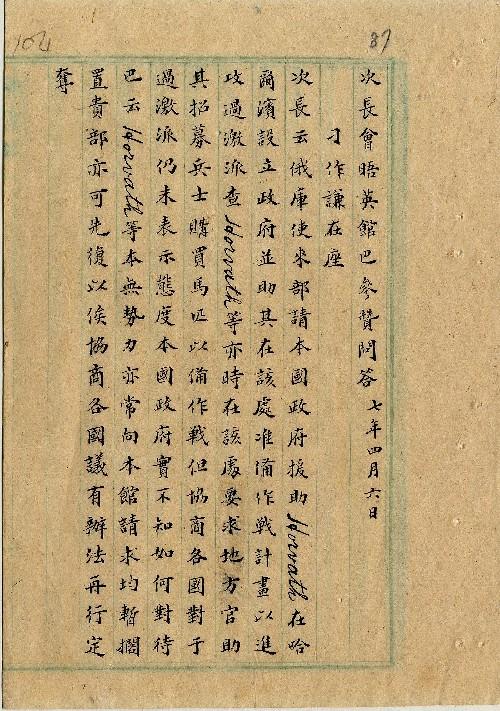 次長會晤英館巴參贊問答 七年四月六日
刁作謙在座
次長云俄庫使來部請本國政府援助Horvath在哈
爾濱設立政府並助其在該處准備作戰計畫以進
攻過激派查Horvath等亦時在該處要求地方官助
其招募兵士購買馬匹以備作戰但協商各國對于
過激派仍未表示態度本國政府實不知如何對待
巴云Horvath等本無勢力亦常向本館請求均暫擱
置貴部亦可先復以俟協商各國議有辦法再行定
奪
104
37